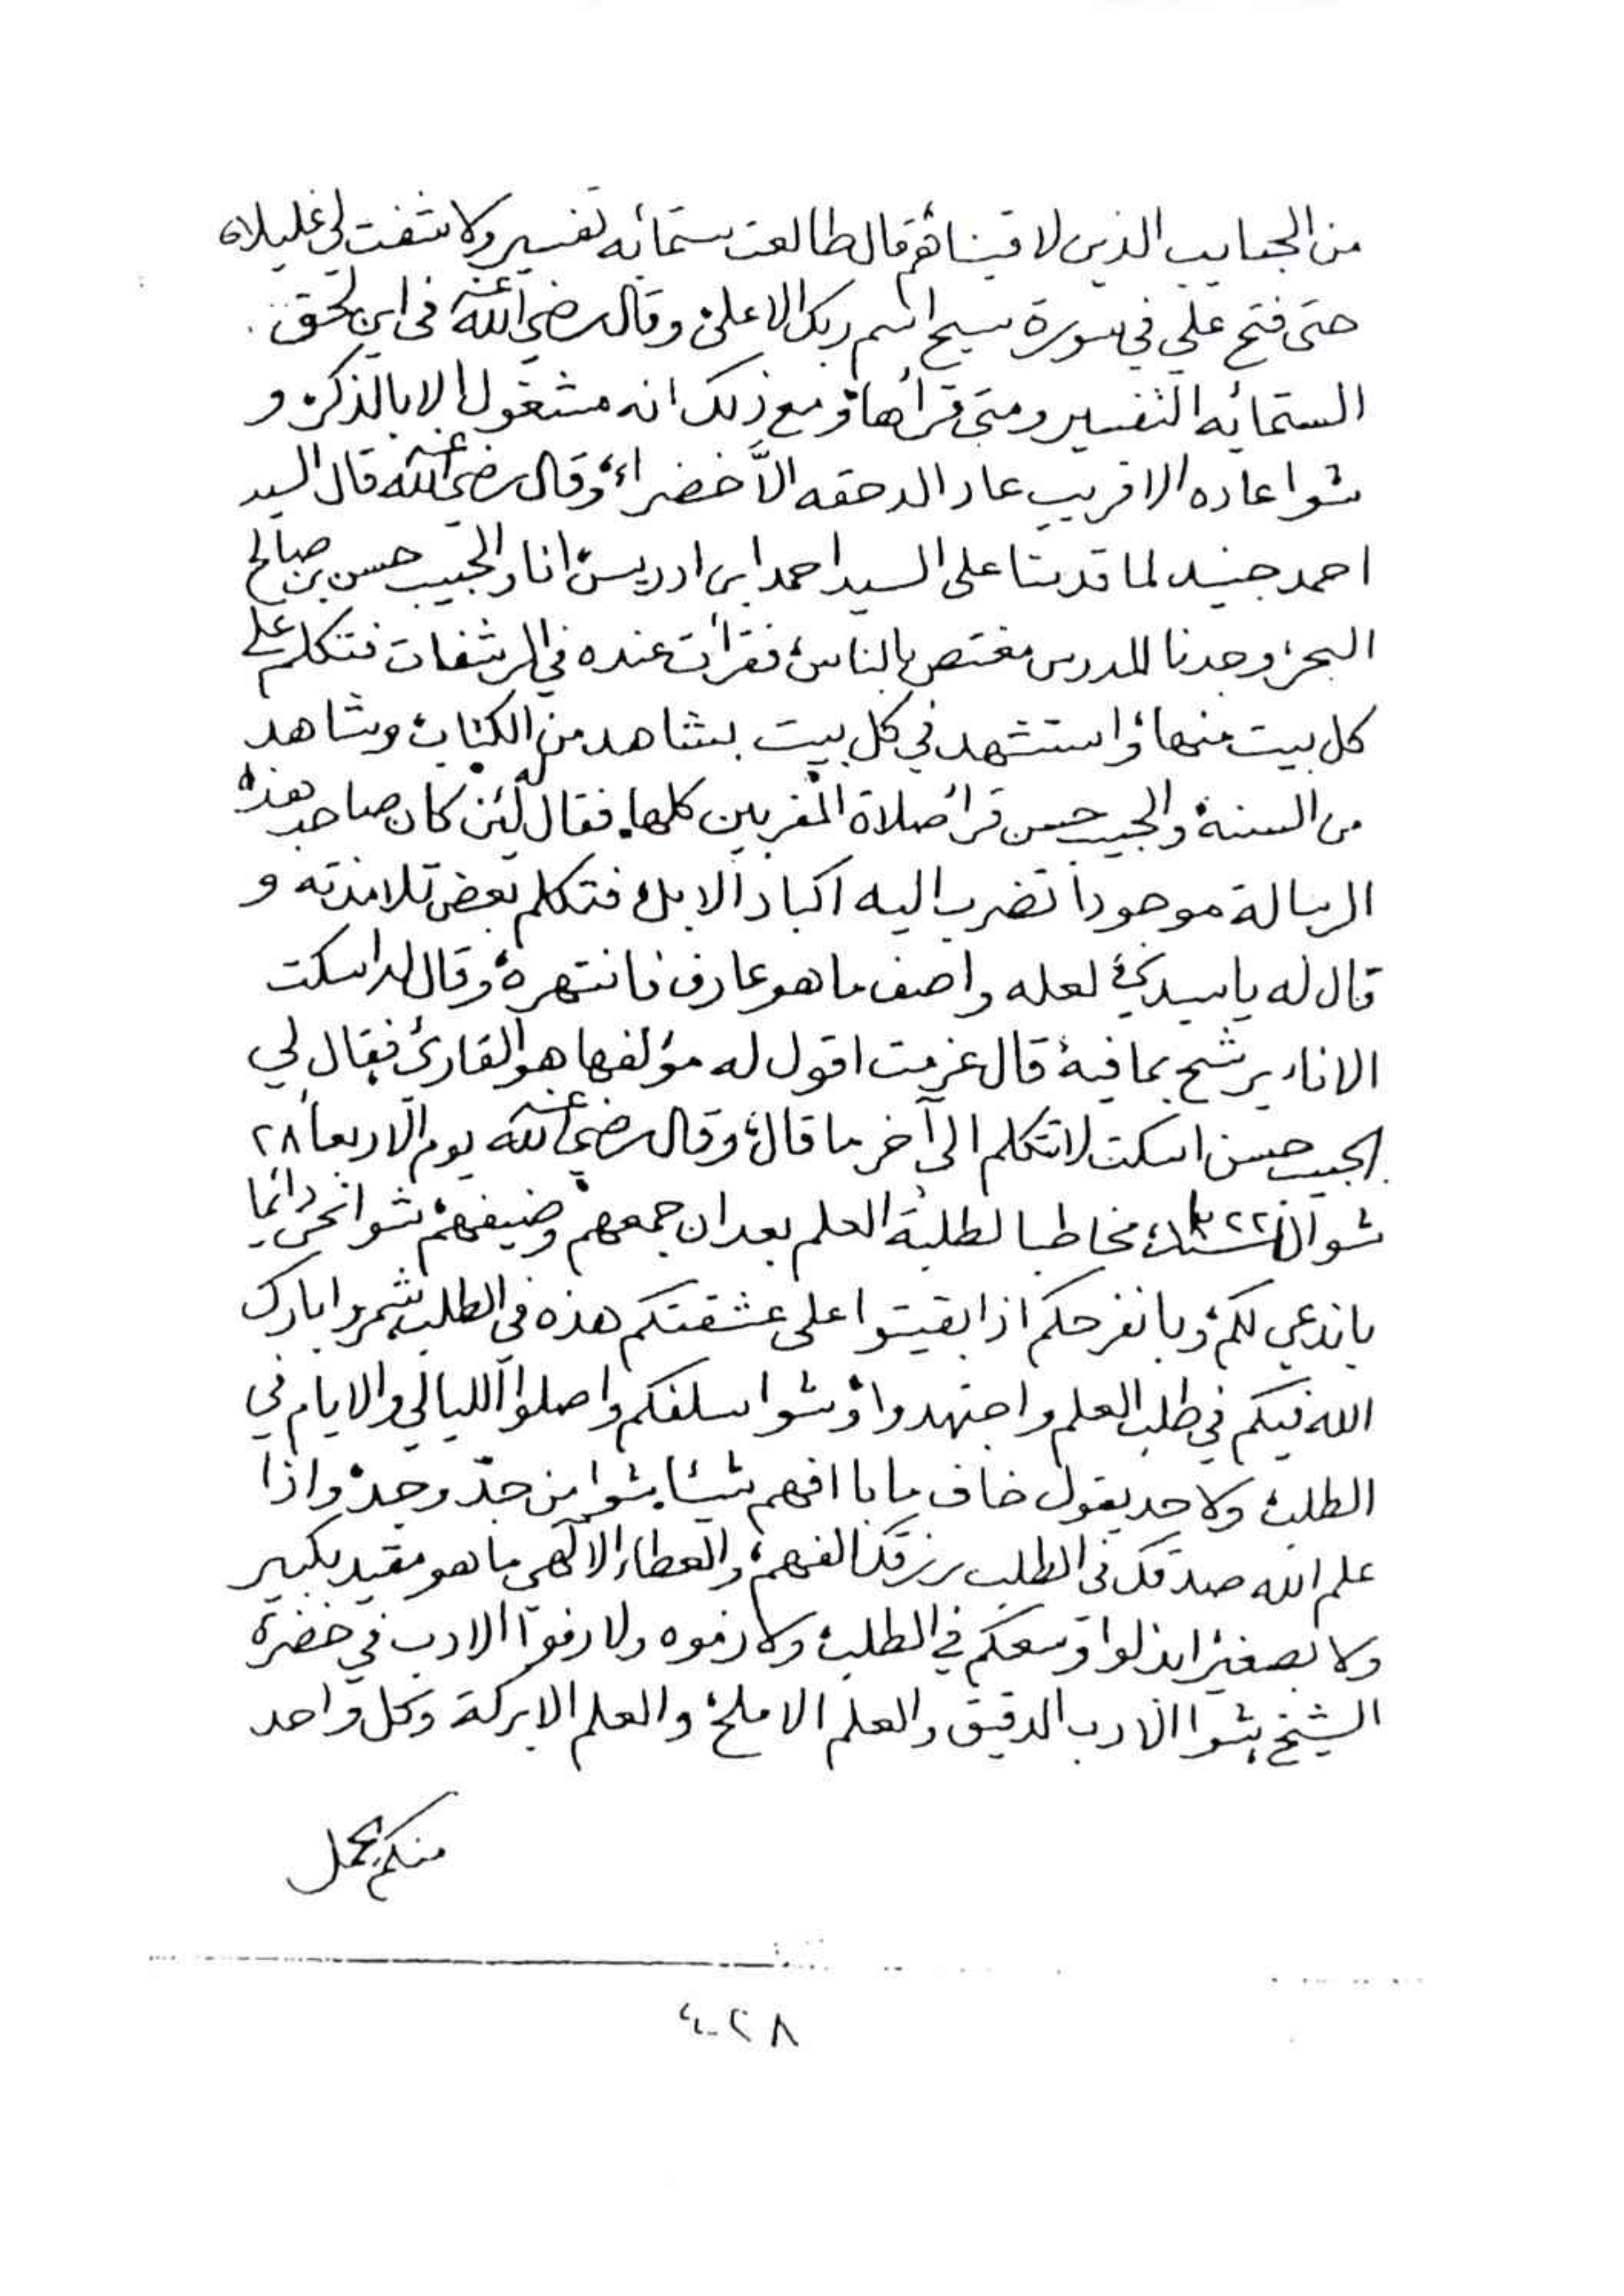 من الحبايب الذين لاقيناهم قال طالعت ستمائه تفسير ولا شفت لي غليلا،
حتى فتح علي في سورة سبح اسم ربك الاعلى، وقال رضي الله عنه في اين لحق
الستمائه التفسير ومتى قرأها، ومع ذلك انه مشغول الا بالذكر، و
شوا عاده الا قريب عاد الدحقه الا خضراء، وقال رضي الله عنه قال السيد
احمد جنيد لما قدمنا على السيد احمد ابن ادريس، انا والحبيب حسن بن صالح
البحر، وجدنا المدرس مغتص بالناس، فقرأت عنده في الرشفات فتكلم على
كل بيت منها، واستشهد في كل بيت بشاهد من الكتاب، وشاهد
من السنة، والحبيب حسن قرأ صلاة المقربين كلها. فقال لئن كان صاحب هذه
الرسالة موجوداً تضرب اليه اكباد الابل، فتكلم بعض تلامذته و
قال له ياسيدي، لعله واصف ما هو عارف فانتهره، وقال له اسكت
الاناء يرشح بما فيه، قال عزمت اقول له مؤلفها هو القارئ، فقال لي
الحبيب حسن اسكت لا تتكلم الى آخر ما قال، وقال رضي الله عنه يوم الاربعا ٢٨
شوال مخاطبا لطلبة العلم بعد ان جمعهم وضيفهم، شوا نحن دائما
باندعي لكم، وبانفرحكم اذا بقيتوا على عشقتكم هذه في الطلب، شمروا بارك
الله فيكم في طلب العلم واجتهدوا، وشوا سلفكم واصلوا الليالي والايام في
الطلب، ولا حد يقول خاف ما با افهم شيئا، شوا من جدّ وجد، واذا
علم الله صدقك في الطلب رزقك الفهم، والعطاء الالهي ما هو مقيد بكبير
ولا بصغير، ابذلوا وسعكم في الطلب، ولازموه ولازموا الادب في حضرة
الشيخ، شوا الادب الدقيق والعلم الا ملح، والعلم الا بركة وكل واحد
منكم يحمل
٢٨